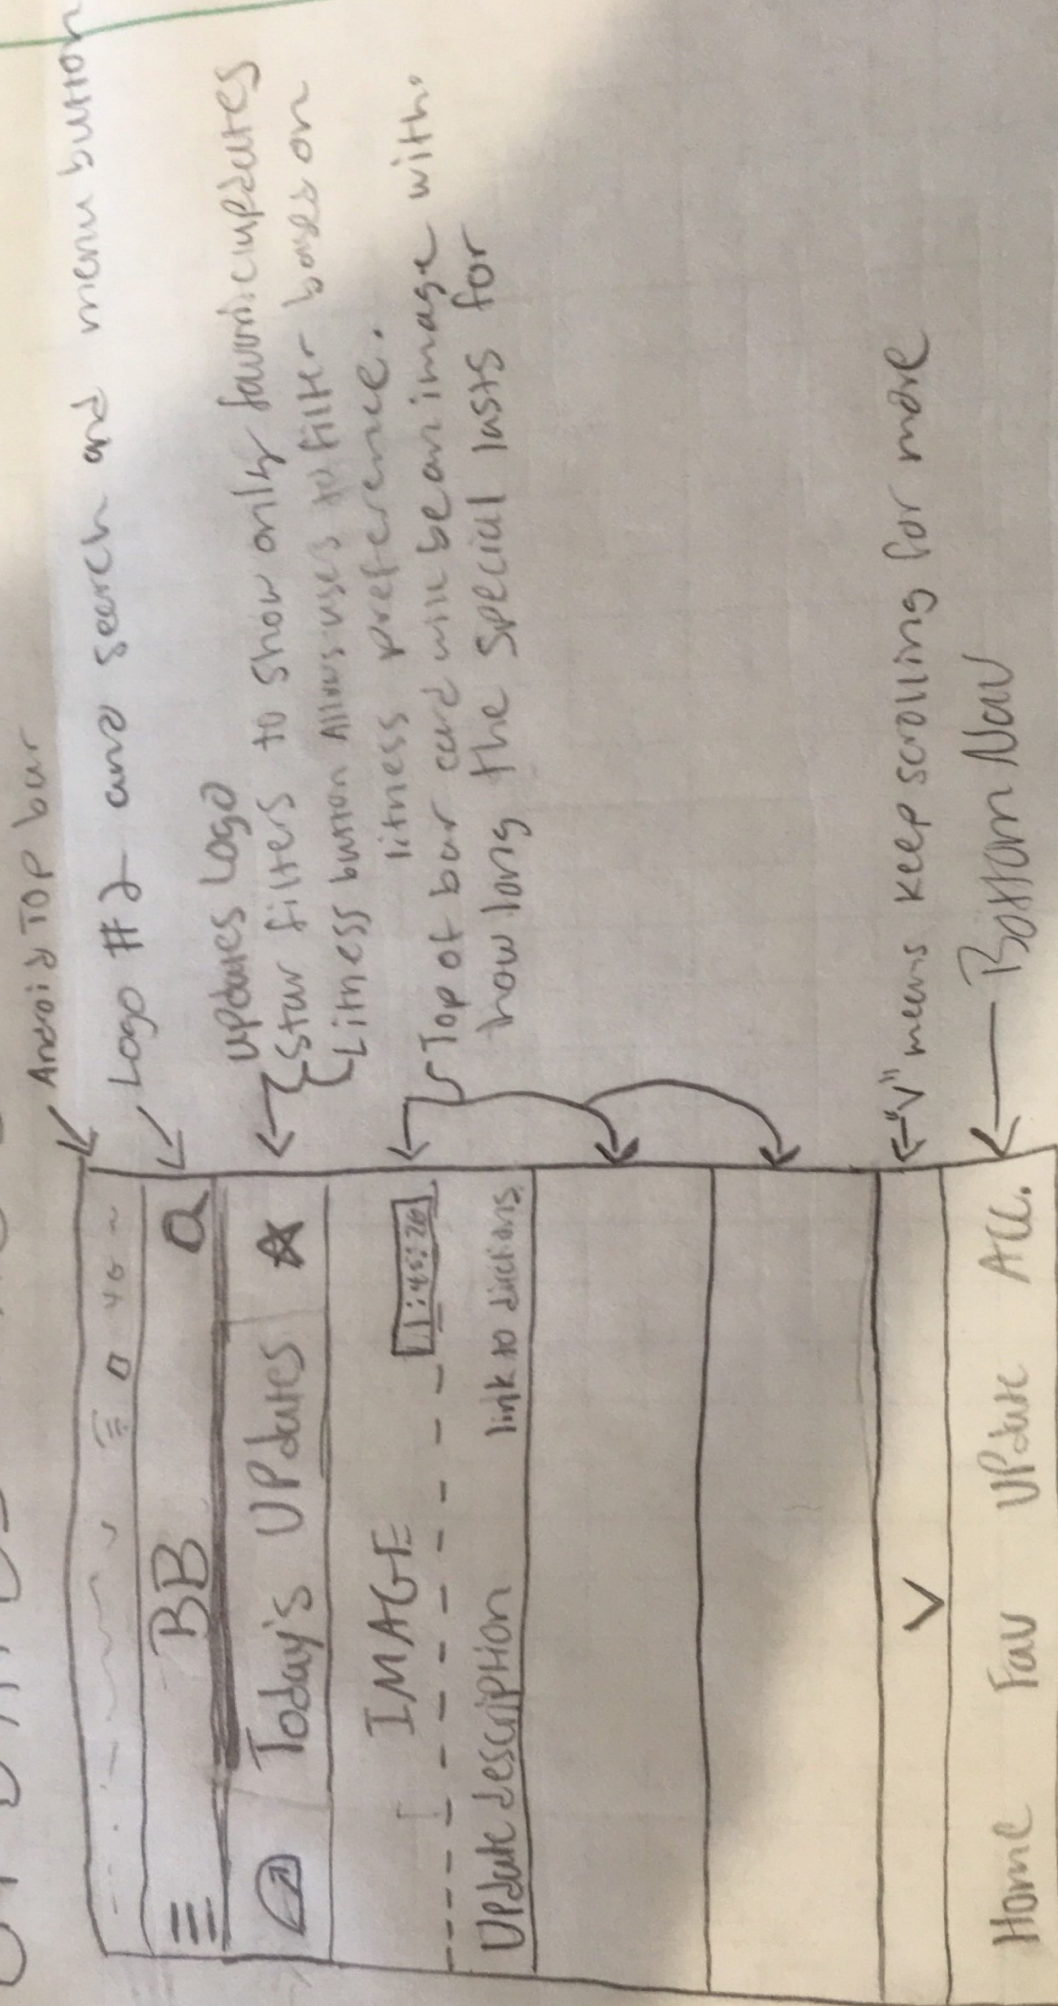 Android TOP bar
Logo #2 and search and menu button
updates Logo
Star filters to show only favorite updates
Litness button Allows uses to filter bases on
litness preference.
Top of bar card will be an image with
how long the special lasts for
"V" means keep scrolling for more
Bottom Nav
4G
BB
Today's UPdates
IMAGE
1:45:20
Update description
link to dirctions
V
Home Fav UPdate Acc.